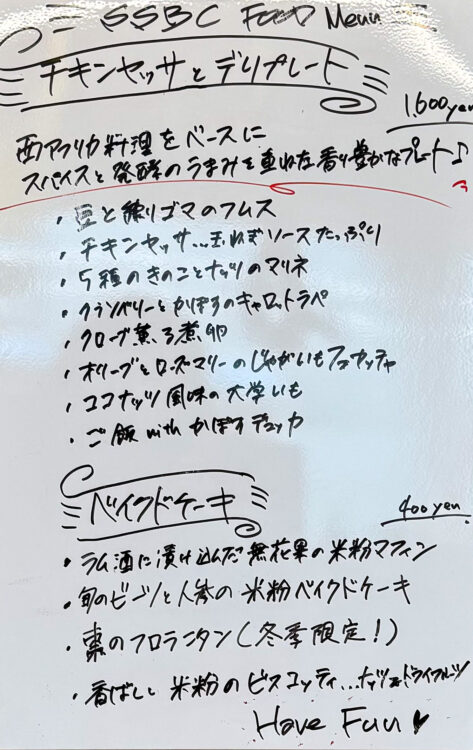 SSBC Food Menu
チキンヤッサとデリプレート
1,600yen
西アフリカ料理をベースに
スパイスと発酵のうまみを重ねた香り豊かなプレート♪
・豆と練りゴマのフムス
・チキンヤッサ…玉ねぎソースたっぷり
・5種のきのことナッツのマリネ
・クランベリーとかぼすのキャロットラペ
・クローブ薫る煮卵
・オリーブとローズマリーのじゃがいもフォカッチャ
・ココナッツ風味の大学いも
・ご飯 with かぼすデュカ
ベイクドケーキ
400yen
・ラム酒に漬け込んだ無花果の米粉マフィン
・旬のビーツと人参の米粉ベイクドケーキ
・棗のフロランタン(冬季限定!)
・香ばしい米粉のビスコッティ…ナッツとドライフルーツ
Have Fun♥